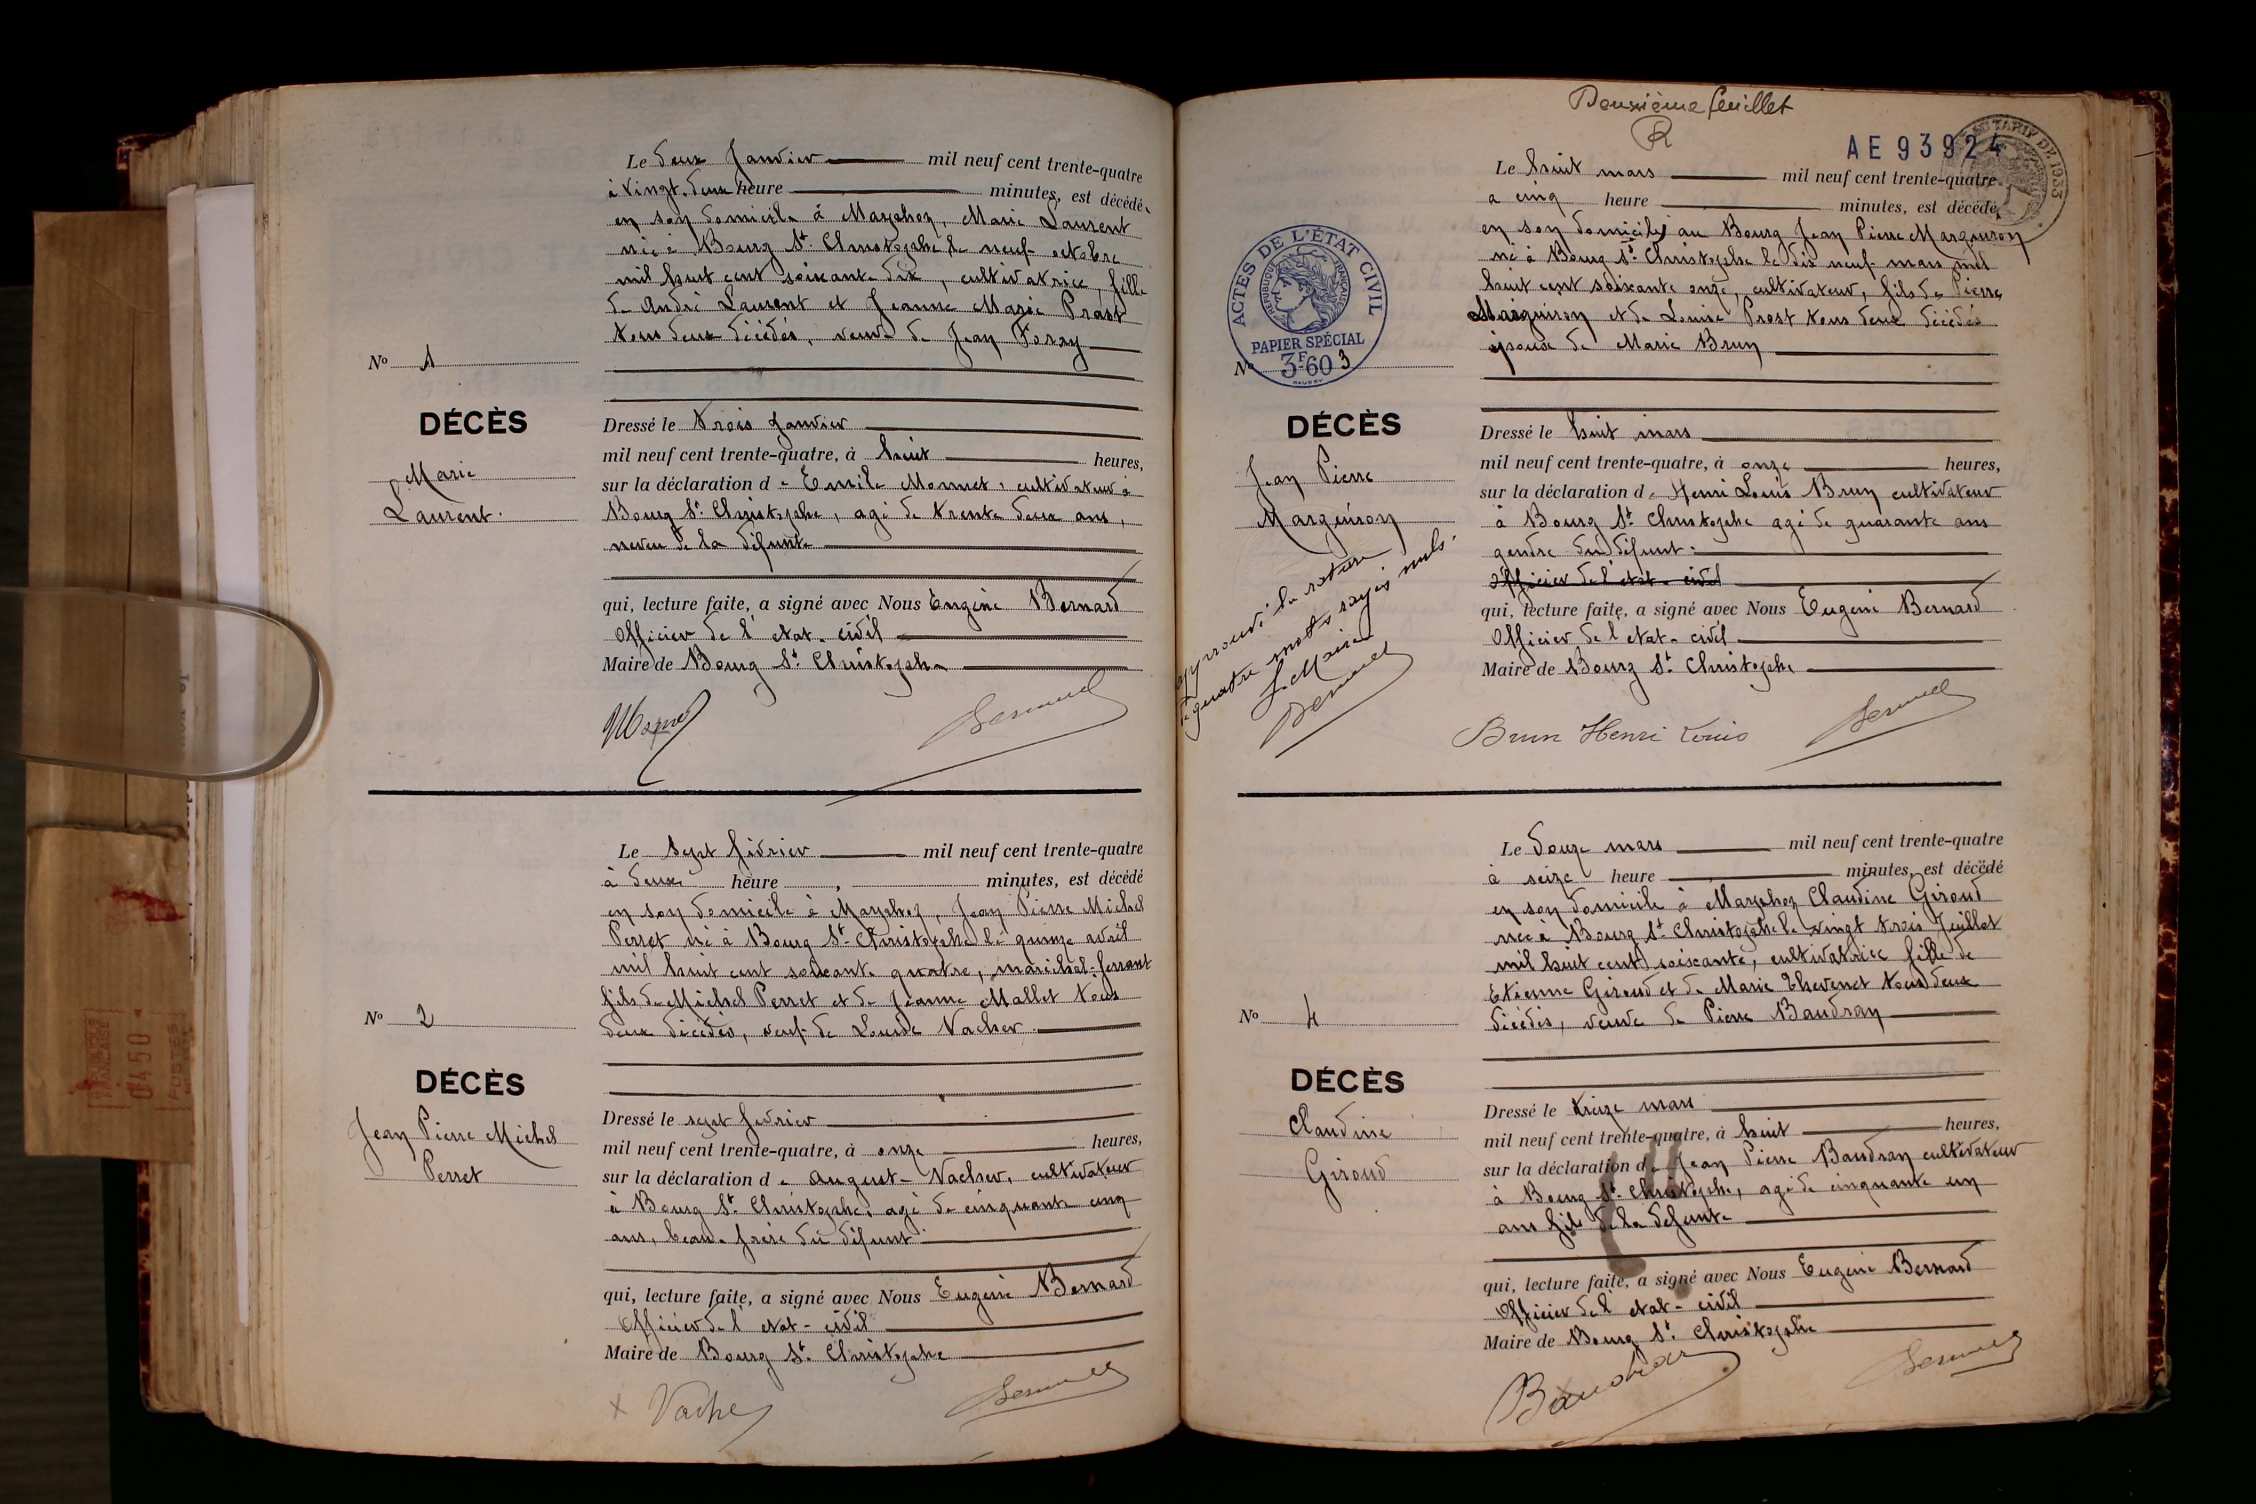 Le deux Janvier mil neuf cent trente-quatre
à vingt-deux heure minutes, est décédée
en son domicile à Marphoz, Marie Laurent
née à Bourg St Christophe le neuf octobre
mil huit cent soixante dix, cultivatrice, fille
de André Laurent et Jeanne Marie Prost
tous deux décédés, veuve de Jean Foray
No 1
DÉCÈS
Marie
Laurent.
Dressé le trois Janvier
mil neuf cent trente-quatre, à huit heures,
sur la déclaration de Emile Monnet, cultivateur à
Bourg St Christophe, agé de trente deux ans,
neveu de la défunte
qui, lecture faite, a signé avec Nous Eugène Bernard
Officier de l'etat-civil
Maire de Bourg St Christophe
Bernard
Le sept février mil neuf cent trente-quatre
à deux heure minutes, est décédé
en son domicile à Marphoz, Jean Pierre Michel
Perret né à Bourg St Christophe le quinze avril
mil huit cent soixante quatre, maréchal-ferrant
fils de Michel Perret et de Jeanne Mallet tous
deux décédés, veuf de Louise Vacher.
No 2
DÉCÈS
Jean Pierre Michel
Perret
Dressé le sept fevrier
mil neuf cent trente-quatre, à onze heures,
sur la déclaration de August- Vacher, cultivateur
à Bourg St Christophe, agé de cinquante cinq
ans, beau-frère du défunt
qui, lecture faite, a signé avec Nous Eugène Bernard
Officier de l'etat-civil
Maire de Bourg St Christophe
x Vacher
Bernard
Deuxième feuillet
AE 93924
TARIF DE 1933
Le huit mars mil neuf cent trente-quatre
a cinq heure minutes, est décédé
en son domicile au Bourg Jean Pierre Marguiron
né à Bourg St Christophe le dix neuf mars mil
huit cent soixante onze, cultivateur, fils de Pierre
Marguiron et de Louise Prost tous deux décédés
époux de Marie Brun
ACTES DE L'ÉTAT CIVIL
REPUBLIQUE FRANÇAISE
PAPIER SPÉCIAL
3F60
No 3
DÉCÈS
Jean Pierre
Marguiron
approuvé la rature
de quatre mots rayés nuls.
Le Maire
Bernard
Dressé le huit mars
mil neuf cent trente-quatre, à onze heures,
sur la déclaration de Henri Louis Brun cultivateur
à Bourg St Christophe agé de quarante ans
gendre du défunt.
Officier de l'etat-civil
qui, lecture faite, a signé avec Nous Eugène Bernard
Officier de l'etat-civil
Maire de Bourg St Christophe
Brun Henri Louis
Bernard
Le douze mars mil neuf cent trente-quatre
à seize heure minutes, est décédé
en son domicile à Marphoz Claudine Giroud
née à Bourg St Christophe le vingt trois Juillet
mil huit cent soixante, cultivatrice fille de
Etienne Giroud et de Marie Thevenet tous deux
décédés, veuve de Pierre Baudran
No 4
DÉCÈS
Claudine
Giroud
Dressé le treize mars
mil neuf cent trente-quatre, à huit heures,
sur la déclaration de Jean Pierre Baudran cultivateur
à Bourg St Christophe, agé de cinquante un
ans fils de la défunte
qui, lecture faite, a signé avec Nous Eugène Bernard
Officier de l'etat-civil
Maire de Bourg St Christophe
Baudran
Bernard
0450
POSTES